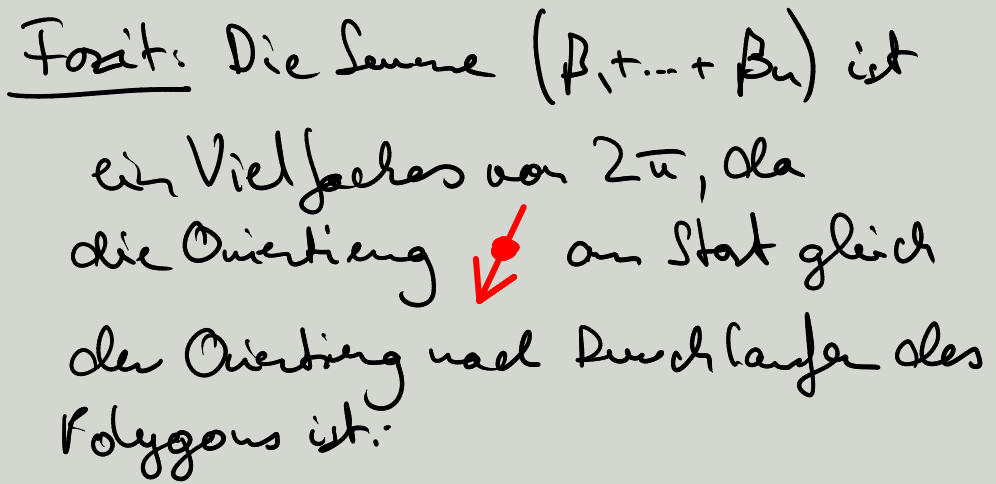 Fazit: Die Summe (β₁+...+βₙ) ist
ein Vielfaches von 2π, da
die Orientierung am Start gleich
der Orientierung nach Durchlaufen des
Polygons ist.